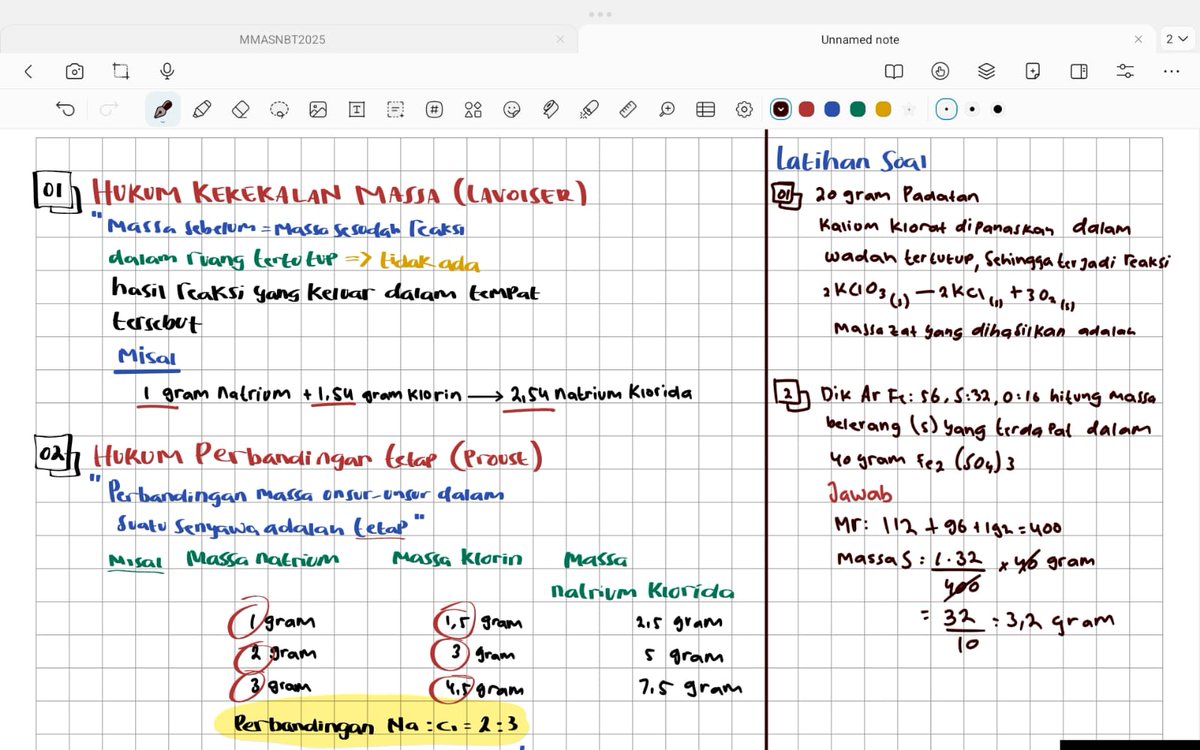 MMASNBT2025
Unnamed note
2
01 HUKUM KEKEKALAN MASSA (LAVOISER)
"Massa sebelum = Massa sesudah reaksi
dalam ruang tertutup => tidak ada
hasil reaksi yang keluar dalam tempat
tersebut
Misal
1 gram natrium + 1,54 gram klorin → 2,54 natrium klorida
02 HUKUM Perbandingan tetap (Proust)
"Perbandingan massa unsur-unsur dalam
suatu senyawa adalah tetap"
Misal Massa natrium Massa klorin Massa
natrium klorida
1 gram 1,5 gram 2,5 gram
2 gram 3 gram 5 gram
3 gram 4,5 gram 7,5 gram
Perbandingan Na : Cl = 2 : 3
Latihan Soal
01 20 gram Padatan
Kalium klorat dipanaskan dalam
wadah tertutup, sehingga terjadi reaksi
2KClO3(s) — 2KCl(s) + 3O2(s)
Massa zat yang dihasilkan adalah
2 Dik Ar Fe: 56, S:32, O:16 hitung massa
belerang (s) yang terdapat dalam
40 gram Fe2 (SO4)3
Jawab
Mr: 112 + 96 + 192 = 400
Massa S : 1.32/400 x 40 gram
= 32/10 : 3,2 gram